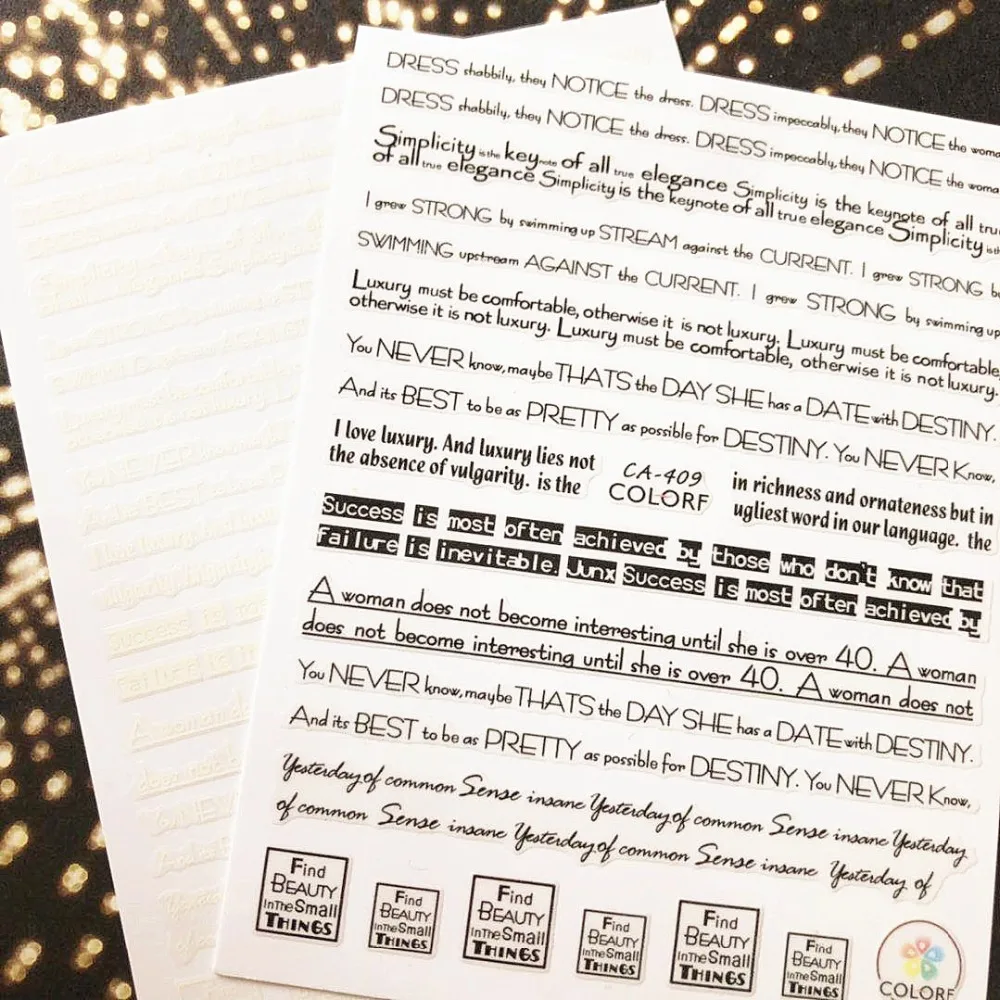 DRESS shabbily, they NOTICE the dress. DRESS impeccably, they NOTICE the woma
DRESS shabbily, they NOTICE the dress. DRESS impeccably, they NOTICE the woma
Simplicity is the keynote of all true elegance Simplicity is the keynote of all true
of all true elegance Simplicity is the keynote of all true elegance Simplicity is th
I grew STRONG by swimming up STREAM against the CURRENT. I grew STRONG by
SWIMMING upstream AGAINST the CURRENT. I grew STRONG by swimming up
Luxury must be comfortable, otherwise it is not luxury. Luxury must be comfortable,
otherwise it is not luxury. Luxury must be comfortable, otherwise it is not luxury.
You NEVER know, maybe THATS the DAY SHE has a DATE with DESTINY.
And its BEST to be as PRETTY as possible for DESTINY. You NEVER Know,
I love luxury. And luxury lies not
the absence of vulgarity. is the
CA-409
COLORF
in richness and ornateness but in
ugliest word in our language. the
Success is most often achieved by those who don't know that
failure is inevitable. Junx Success is most often achieved by
A woman does not become interesting until she is over 40. A woman
does not become interesting until she is over 40. A woman does not
You NEVER know, maybe THATS the DAY SHE has a DATE with DESTINY.
And its BEST to be as PRETTY as possible for DESTINY. You NEVER Know,
Yesterday of common Sense insane Yesterday of common Sense insane Yesterday
of common Sense insane Yesterday of common Sense insane Yesterday of
Find
BEAUTY
In The Small
THINGS
Find
BEAUTY
In The Small
THINGS
Find
BEAUTY
In The Small
THINGS
Find
BEAUTY
In The Small
THINGS
Find
BEAUTY
In The Small
THINGS
Find
BEAUTY
In The Small
THINGS
COLORF